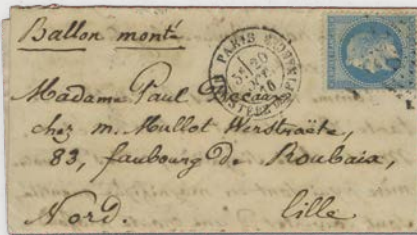 Ballon monté
PARIS
20
Madame Paul
chez m. Mullot Werstraëte,
83, faubourg De Roubaix,
Nord. Lille